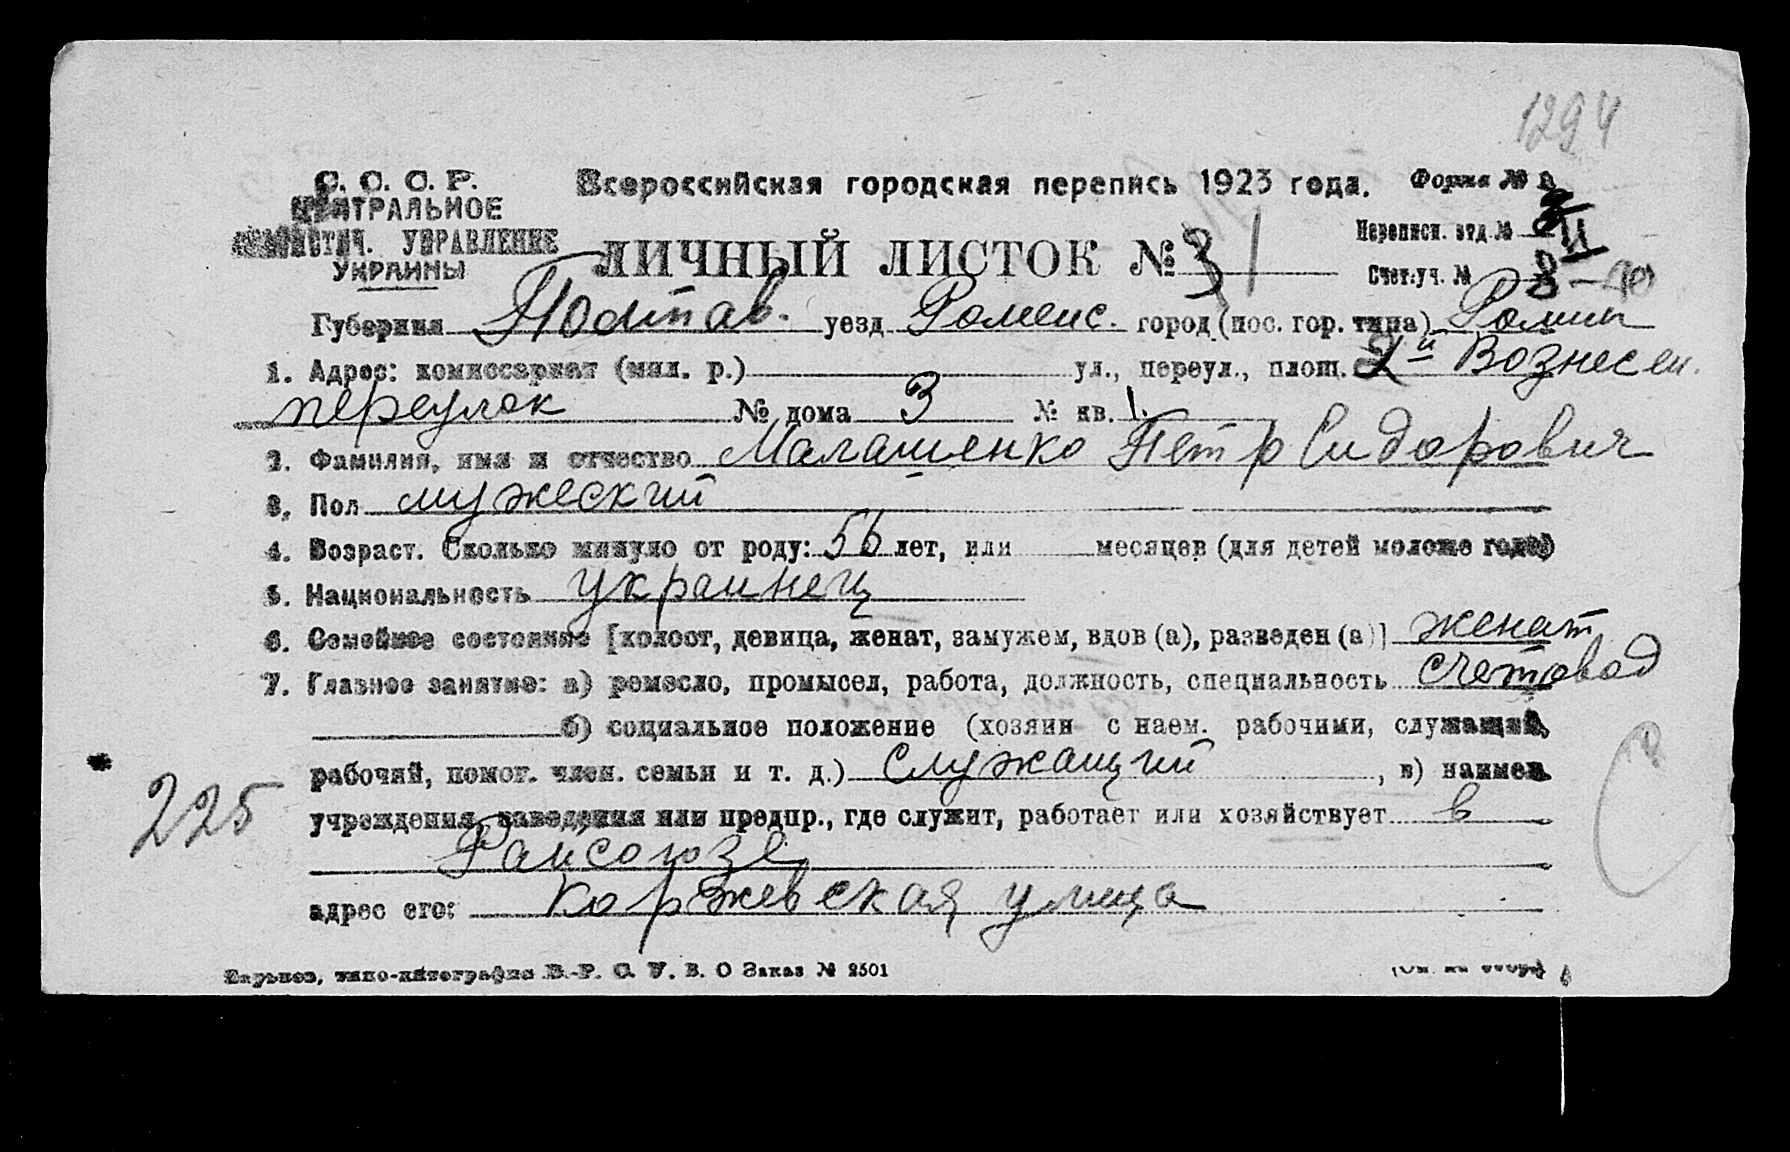 1294
С. С. С. Р. Всероссийская городская перепись 1923 года. Форма №
ЦЕНТРАЛЬНОЕ
СТАТИСТИЧ. УПРАВЛЕНИЕ
УКРАИНЫ
ЛИЧНЫЙ ЛИСТОК №
Переписн. отд. № II
Счет. уч. № 8 – 40
Губерния Полтав. уезд Роменс. город (пос. гор. типа) Ромны
1. Адрес: комиссариат (мил. р.) ул., переул., площ. 2й Вознесен.
переулок № дома 3 № кв. 1.
2. Фамилия, имя и отчество Малашенко Петр Сидорович
3. Пол мужеский
4. Возраст. Сколько минуло от роду: 56 лет, или месяцев (для детей моложе года)
5. Национальность украинец
6. Семейное состояние [холост, девица, женат, замужем, вдов (а), разведен (а)] женат
7. Главное занятие: а) ремесло, промысел, работа, должность, специальность счетовод
б) социальное положение (хозяин с наем. рабочими, служащий,
рабочий, помог. член. семьи и т. д.) Служащий , в) наимен.
учреждения, заведения или предпр., где служит, работает или хозяйствует в
Райсоюзе
адрес его: Коржевская улица
225
Харьков, типо-литография В.-Р. С. У. В. О Заказ № 2501